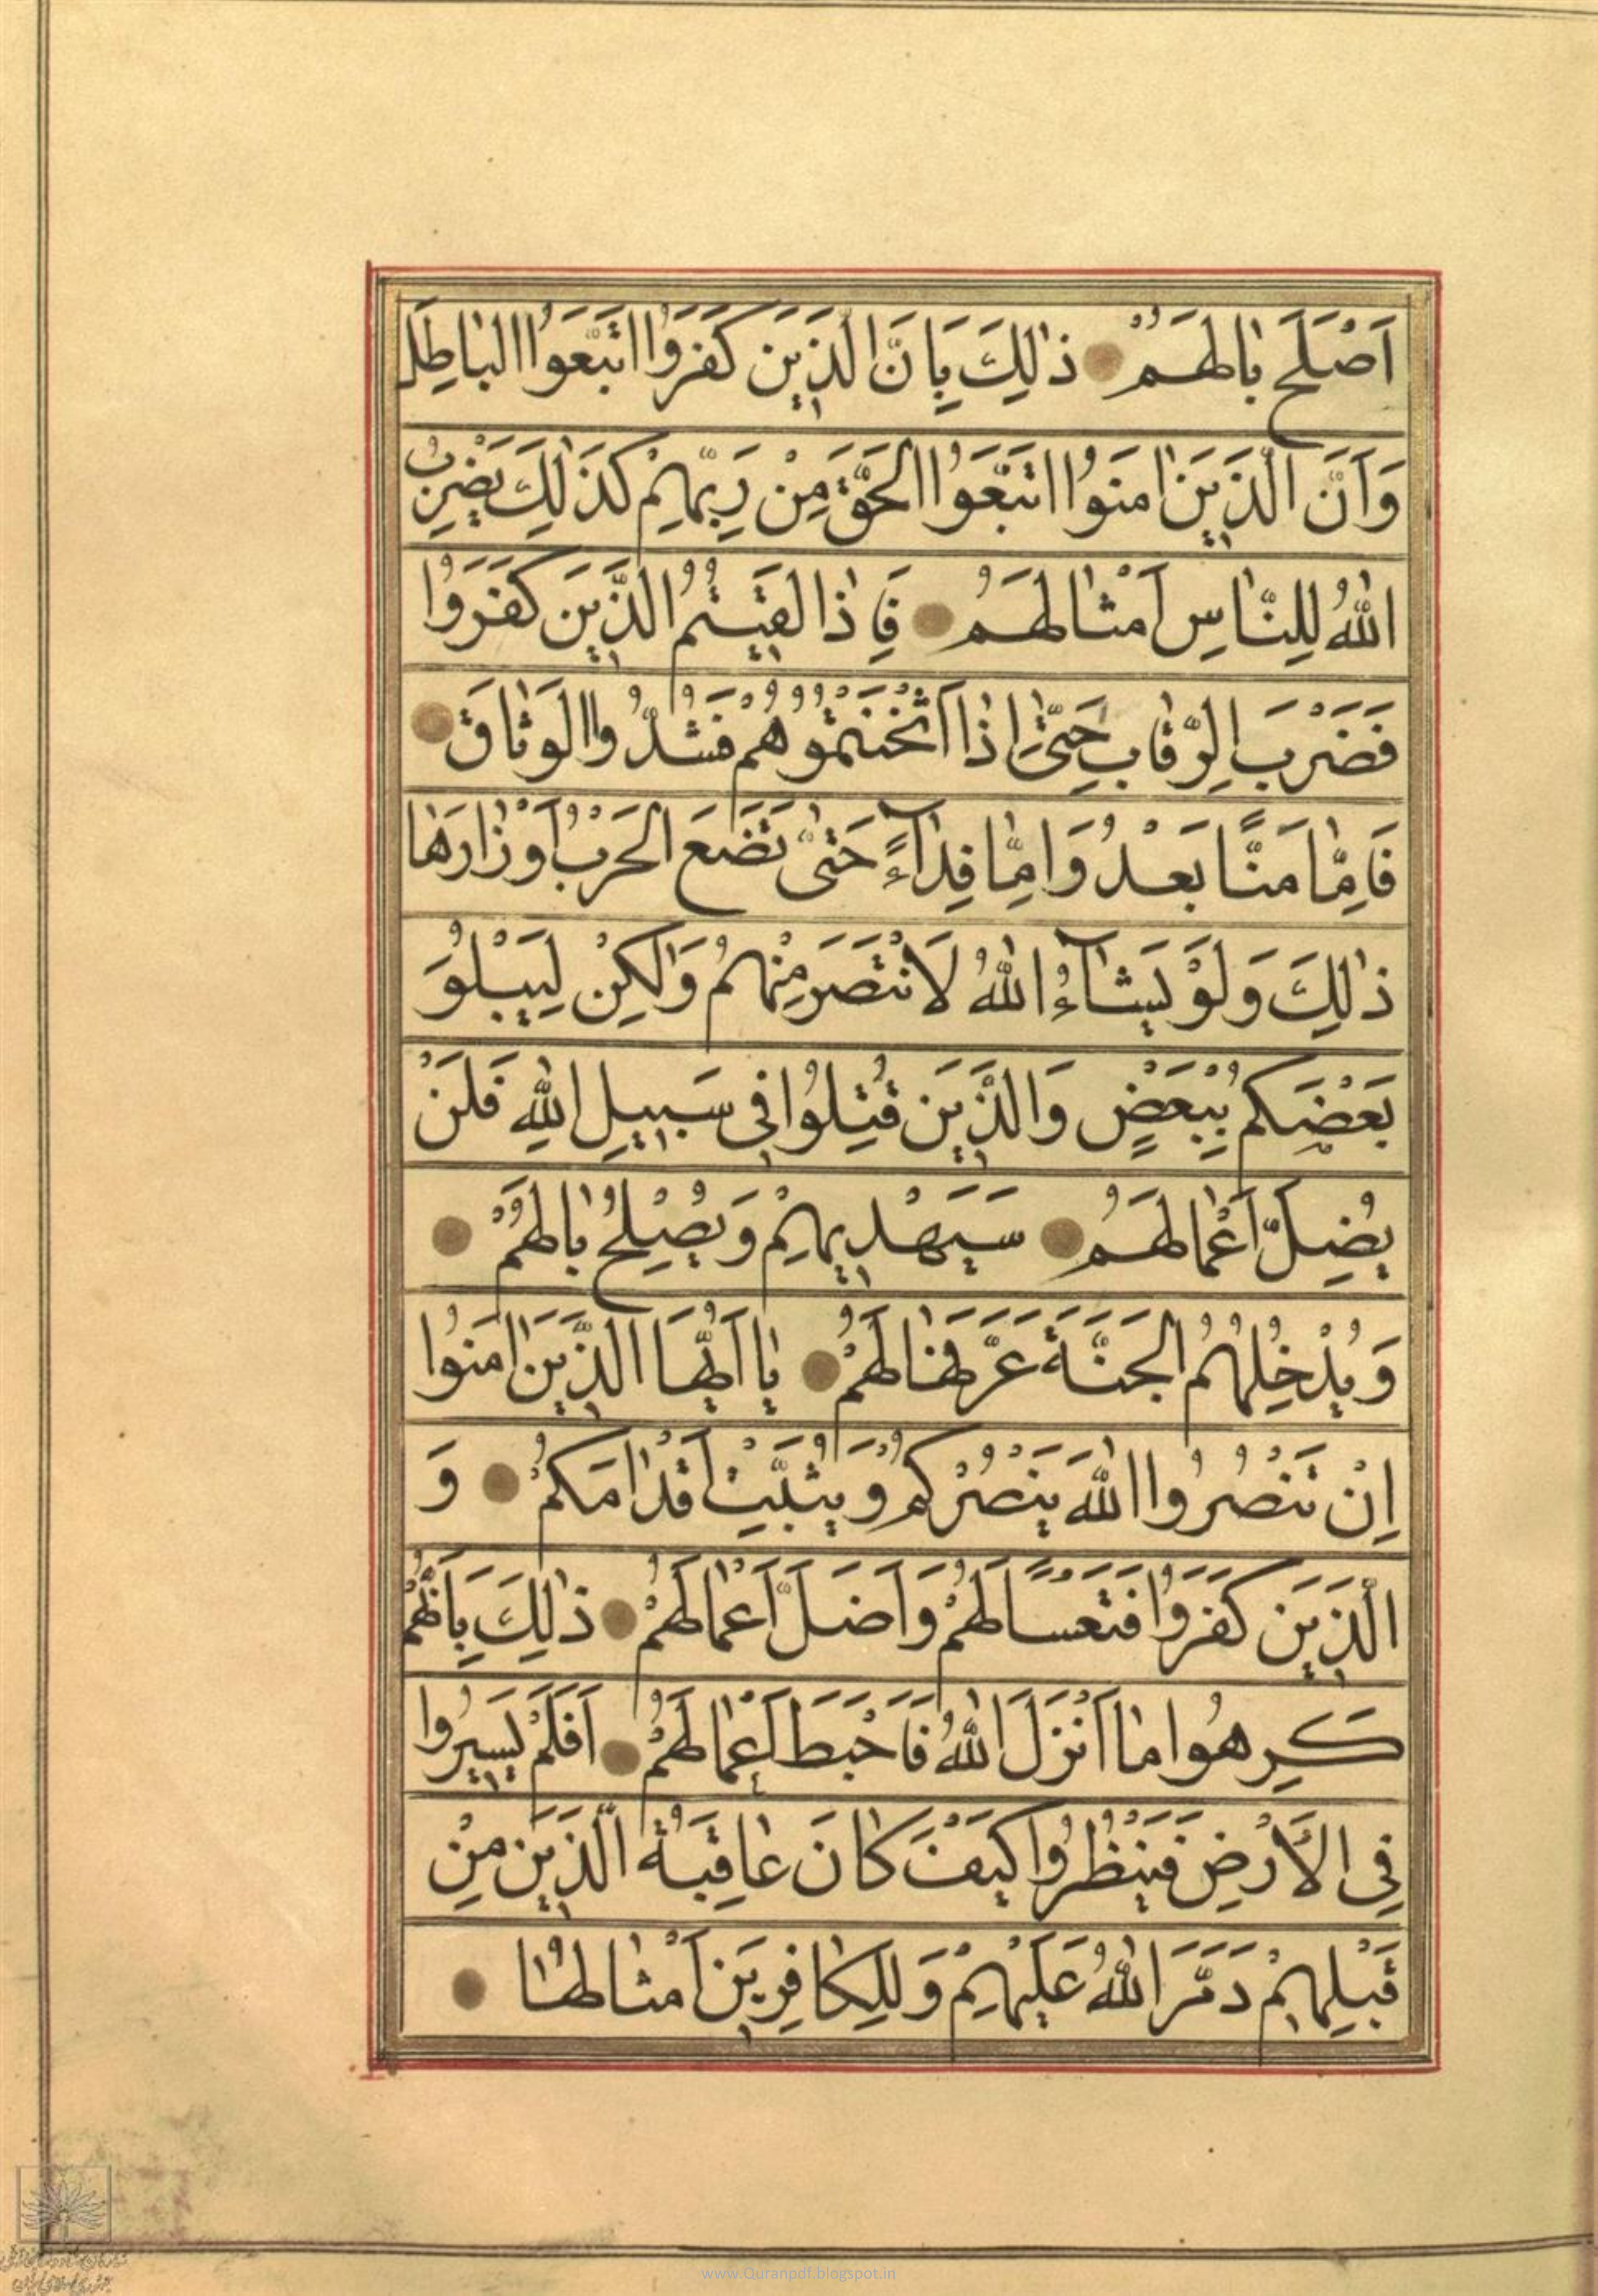 اَصْلَحَ بٰالَهُمْ ذٰلِكَ بِاَنَّ الَّذِينَ كَفَرُوا اتَّبَعُوا الْبٰاطِلَ
وَاَنَّ الَّذِينَ اٰمَنُوا اتَّبَعُوا الْحَقَّ مِنْ رَبِّهِمْ كَذٰلِكَ يَضْرِبُ
اللّٰهُ لِلنّٰاسِ اَمْثٰالَهُمْ فَاِذٰا لَقِيتُمُ الَّذِينَ كَفَرُوا
فَضَرْبَ الرِّقٰابِ حَتّٰى اِذٰا اَثْخَنْتُمُوهُمْ فَشُدُّوا الْوَثٰاقَ
فَاِمّٰا مَنًّا بَعْدُ وَاِمّٰا فِدٰاءً حَتّٰى تَضَعَ الْحَرْبُ اَوْزٰارَهٰا
ذٰلِكَ وَلَوْ يَشٰاءُ اللّٰهُ لَانْتَصَرَ مِنْهُمْ وَلٰكِنْ لِيَبْلُوَ
بَعْضَكُمْ بِبَعْضٍ وَالَّذِينَ قُتِلُوا فِي سَبِيلِ اللّٰهِ فَلَنْ
يُضِلَّ اَعْمٰالَهُمْ سَيَهْدِيهِمْ وَيُصْلِحُ بٰالَهُمْ
وَيُدْخِلُهُمُ الْجَنَّةَ عَرَّفَهٰا لَهُمْ يٰا اَيُّهَا الَّذِينَ اٰمَنُوا
اِنْ تَنْصُرُوا اللّٰهَ يَنْصُرْكُمْ وَيُثَبِّتْ اَقْدٰامَكُمْ وَ
الَّذِينَ كَفَرُوا فَتَعْسًا لَهُمْ وَاَضَلَّ اَعْمٰالَهُمْ ذٰلِكَ بِاَنَّهُمْ
كَرِهُوا مٰا اَنْزَلَ اللّٰهُ فَاَحْبَطَ اَعْمٰالَهُمْ اَفَلَمْ يَسِيرُوا
فِي الْاَرْضِ فَيَنْظُرُوا كَيْفَ كٰانَ عٰاقِبَةُ الَّذِينَ مِنْ
قَبْلِهِمْ دَمَّرَ اللّٰهُ عَلَيْهِمْ وَلِلْكٰافِرِينَ اَمْثٰالُهٰا
www.Quranpdf.blogspot.in